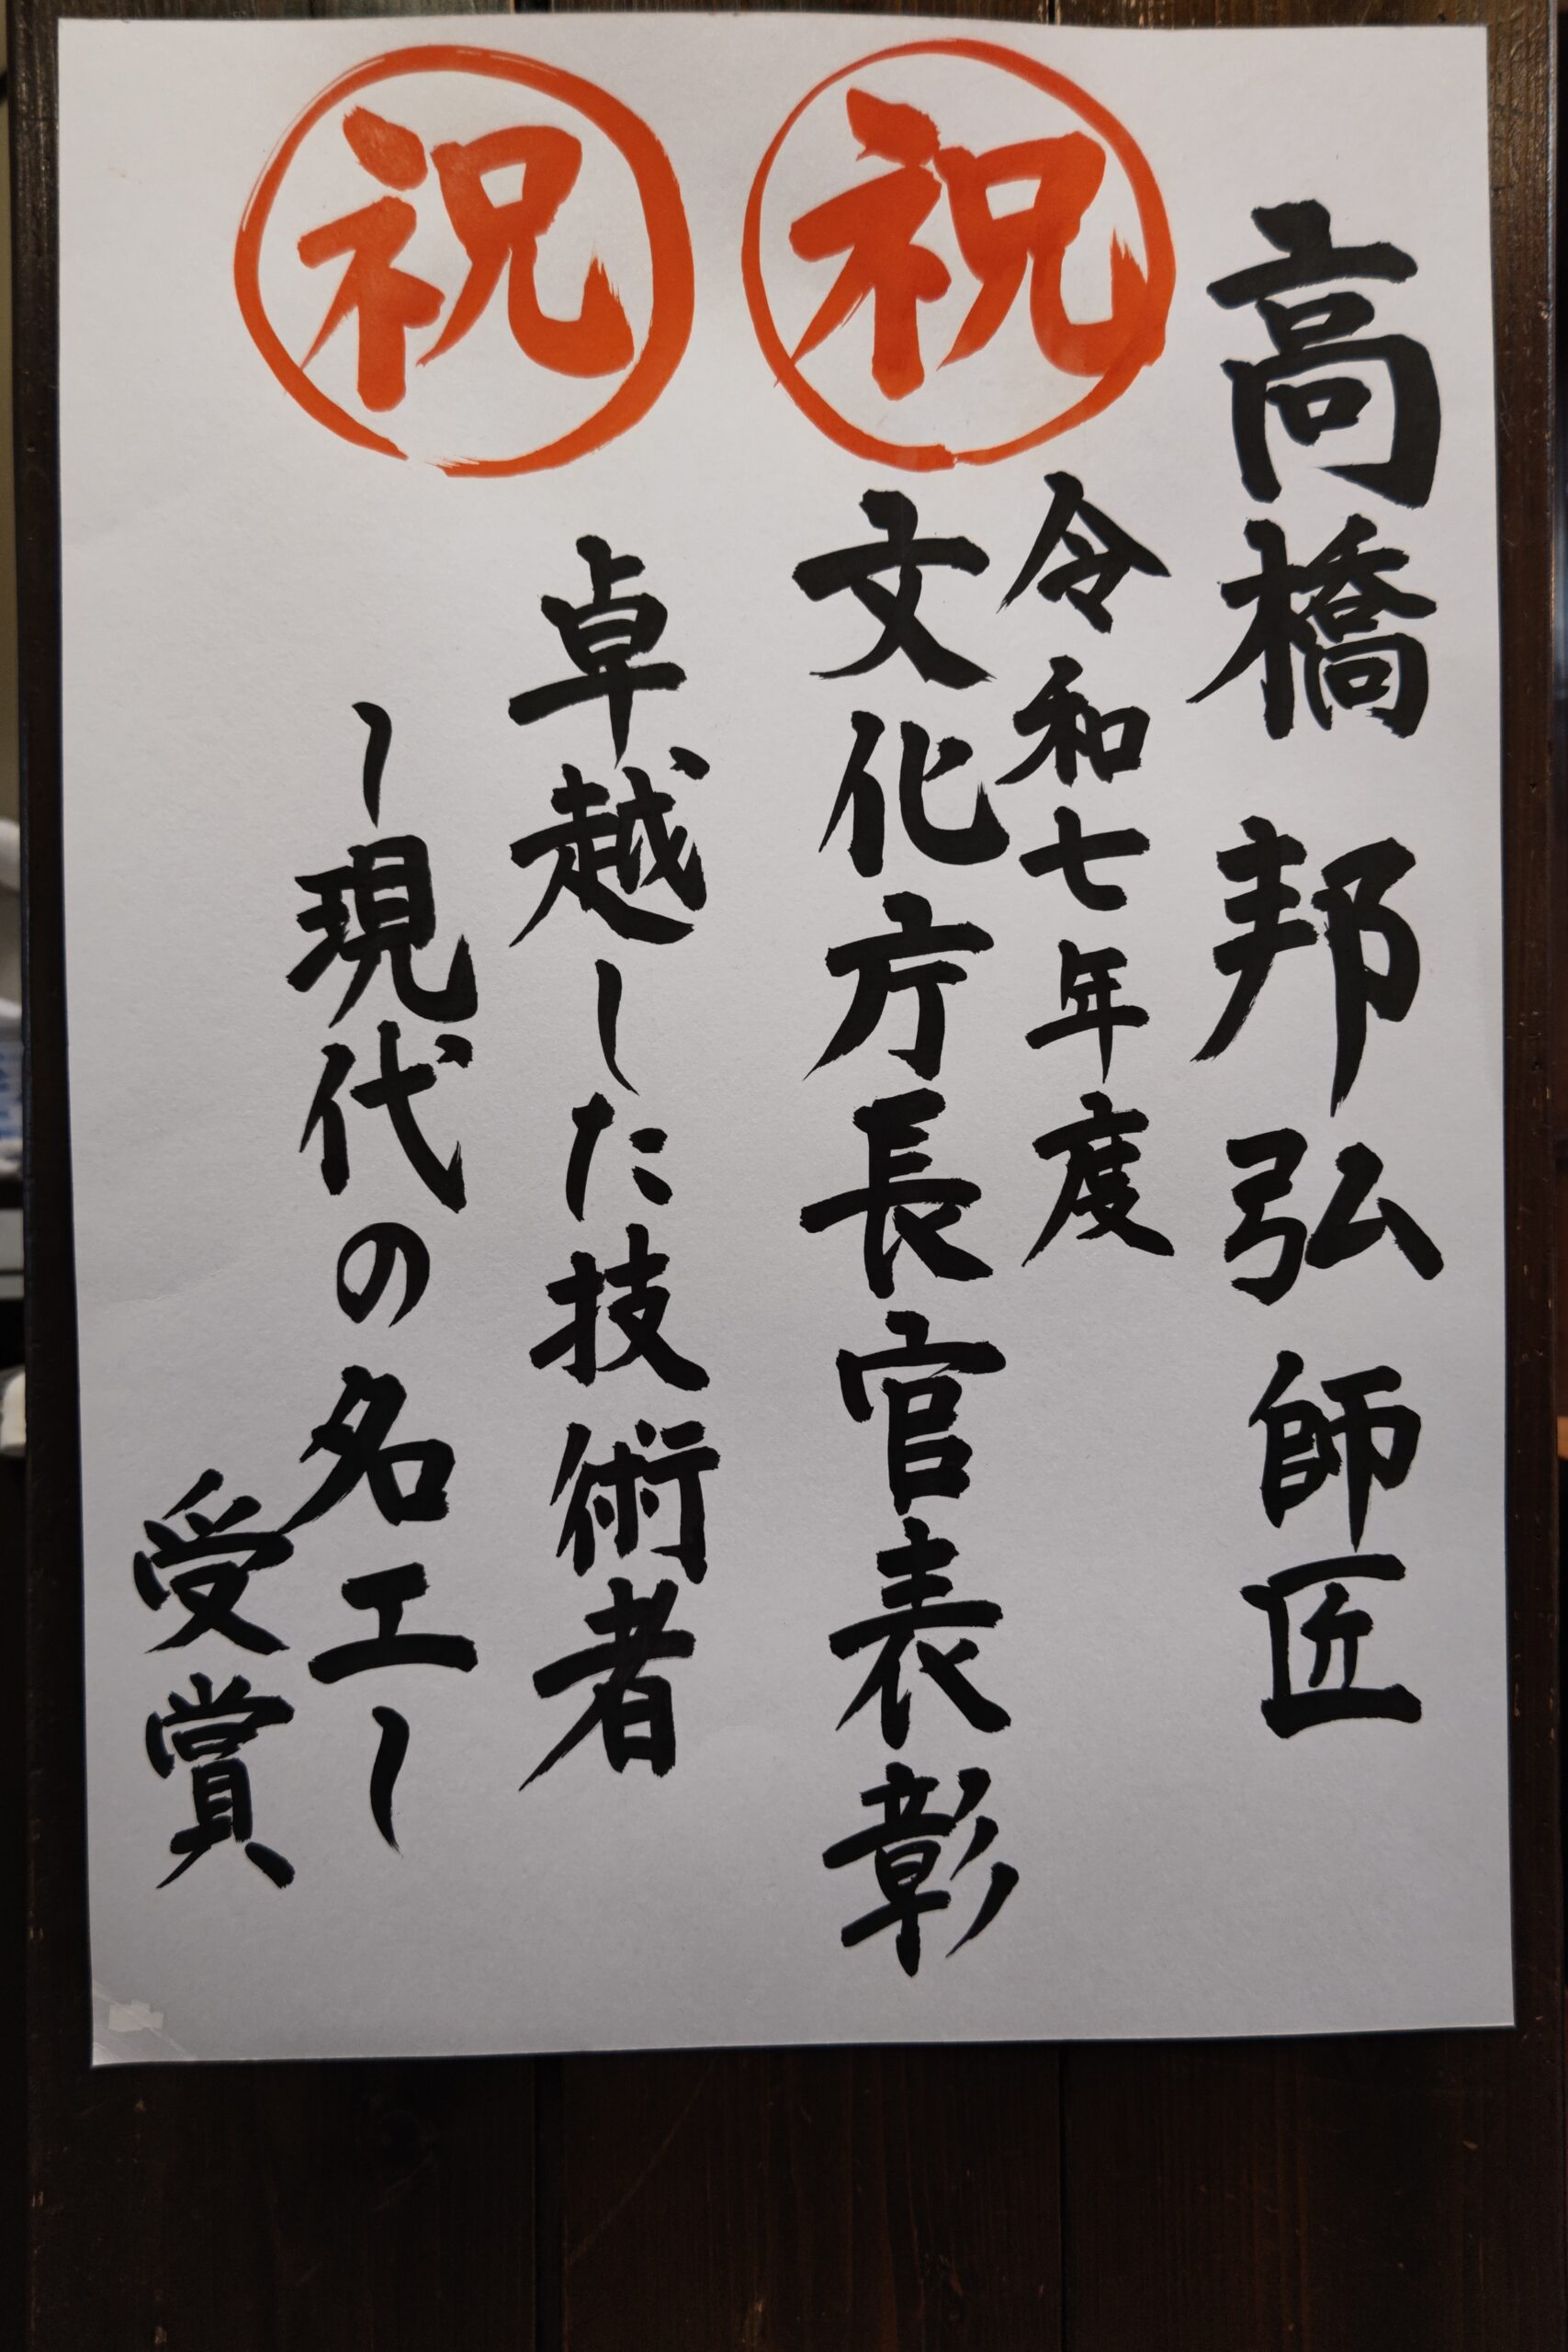 高橋邦弘師匠
祝
令和七年度
文化庁長官表彰
祝
卓越した技術者
～現代の名工～
受賞